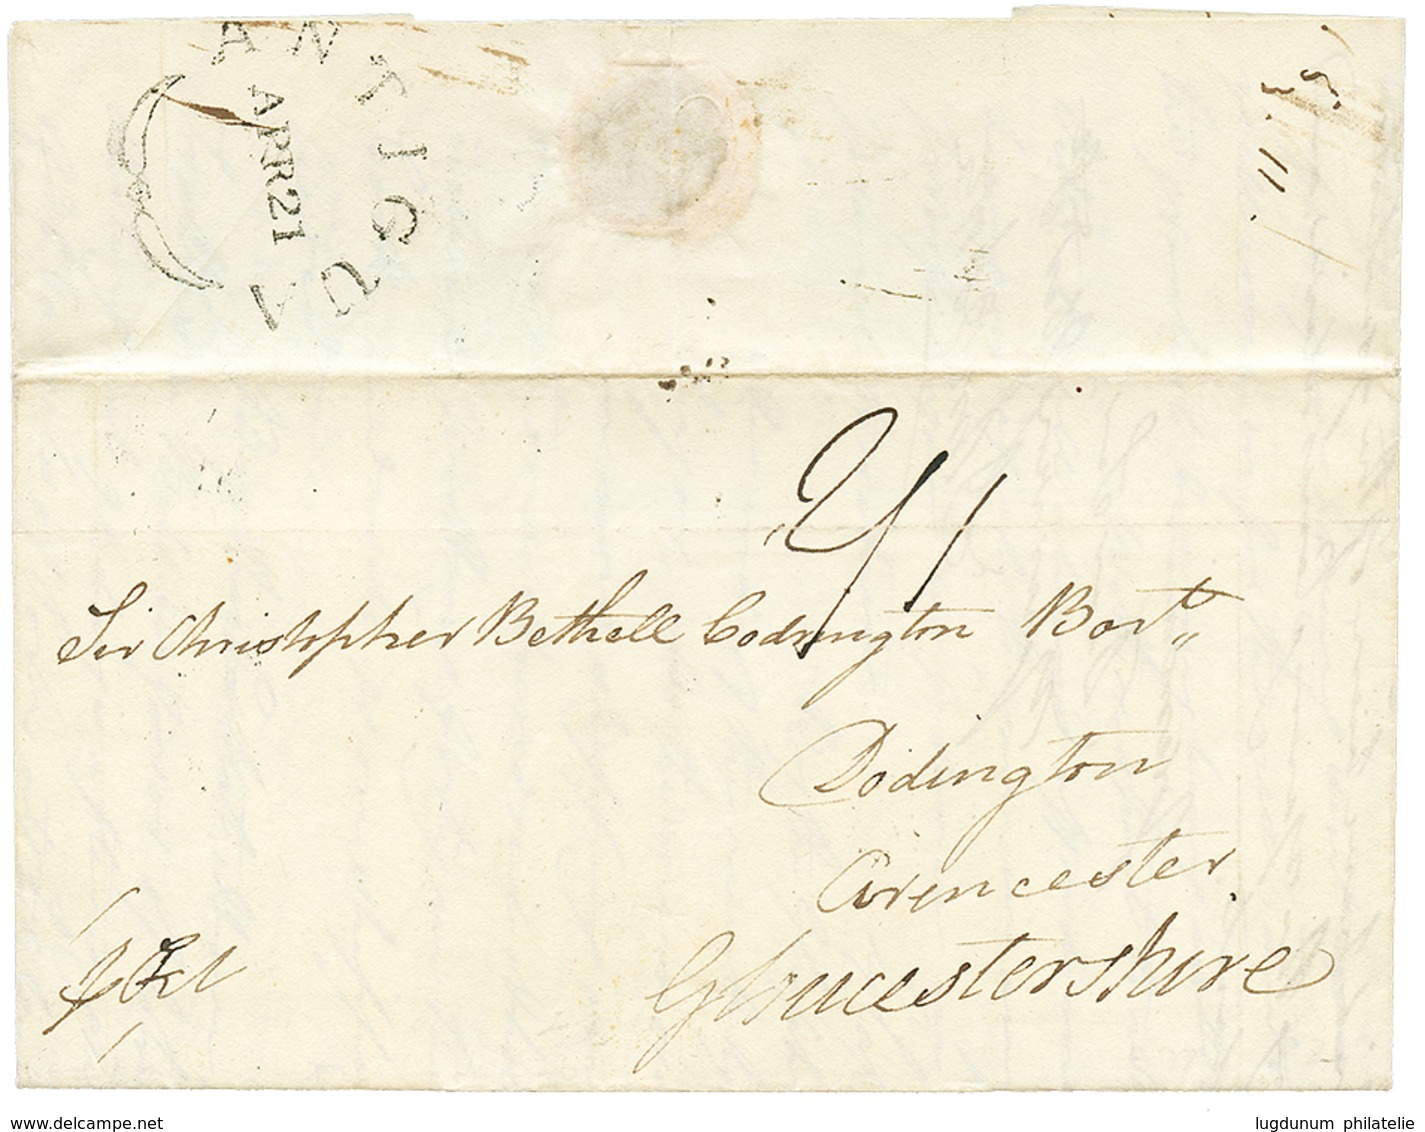 ANTIGUA
APR 21
Sir Christopher Bethell Codrington Bart
Dodington
Cirencester
Gloucestershire
www.delcampe.net
lugdunum philatelie